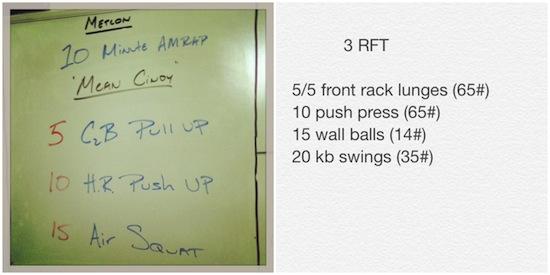 METCON
10 Minute AMRAP
"MEAN CINDY"
5 C2B Pull UP
10 H.R. Push UP
15 Air SQUAT
3 RFT
5/5 front rack lunges (65#)
10 push press (65#)
15 wall balls (14#)
20 kb swings (35#)